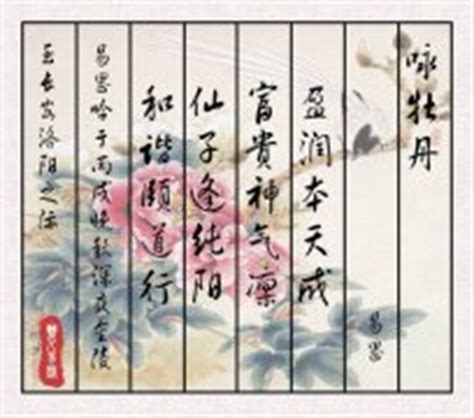 咏牡丹
易思
盈润本天成
富貴神气凛
仙子逢纯阳
和谐颐道行
易思吟于丙戌晚秋深夜金陵
长安洛阳之际